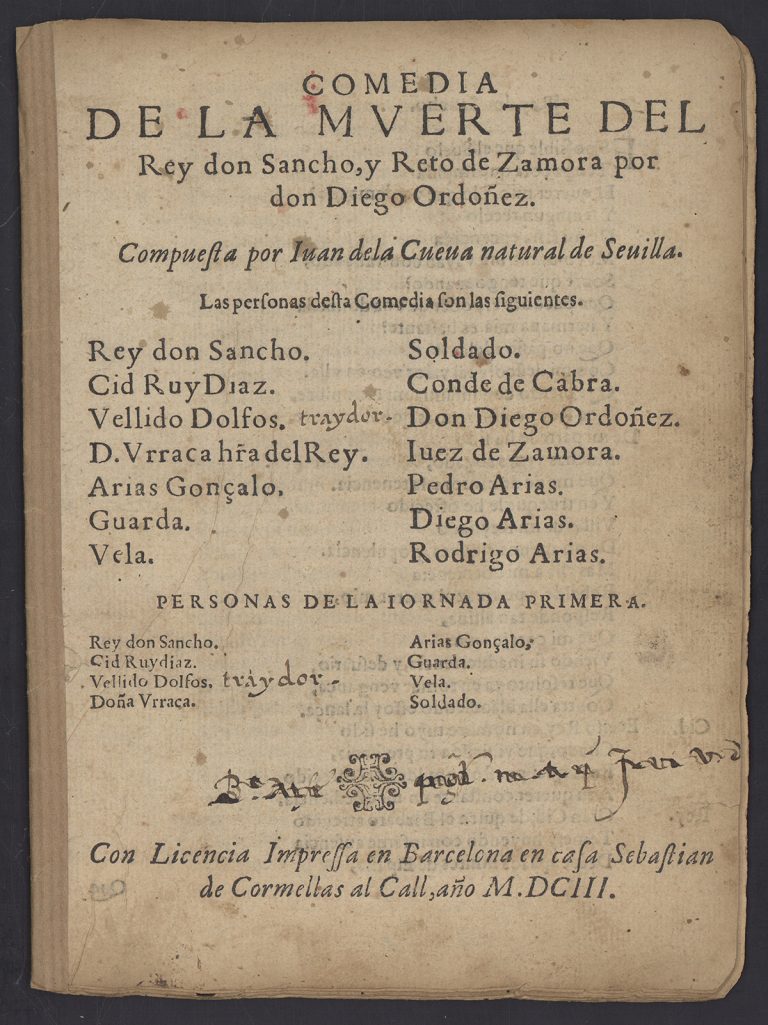 COMEDIA
DE LA MVERTE DEL
Rey don Sancho, y Reto de Zamora por
don Diego Ordoñez.
Compueſta por Iuan dela Cueua natural de Seuilla.
Las perſonas deſta Comedia ſon las ſiguientes.
Rey don Sancho.
Cid Ruy Diaz.
Vellido Dolfos. traydor.
D. Vrraca hr̃a del Rey.
Arias Gonçalo.
Guarda.
Vela.
Soldado.
Conde de Cabra.
Don Diego Ordoñez.
Iuez de Zamora.
Pedro Arias.
Diego Arias.
Rodrigo Arias.
PERSONAS DE LA IORNADA PRIMERA.
Rey don Sancho.
Cid Ruydiaz.
Vellido Dolfos. traydor.
Doña Vrraca.
Arias Gonçalo,
Guarda.
Vela.
Soldado.
Con Licencia Impreſſa en Barcelona en caſa Sebaſtian
de Cormellas al Call, año M.DCIII.